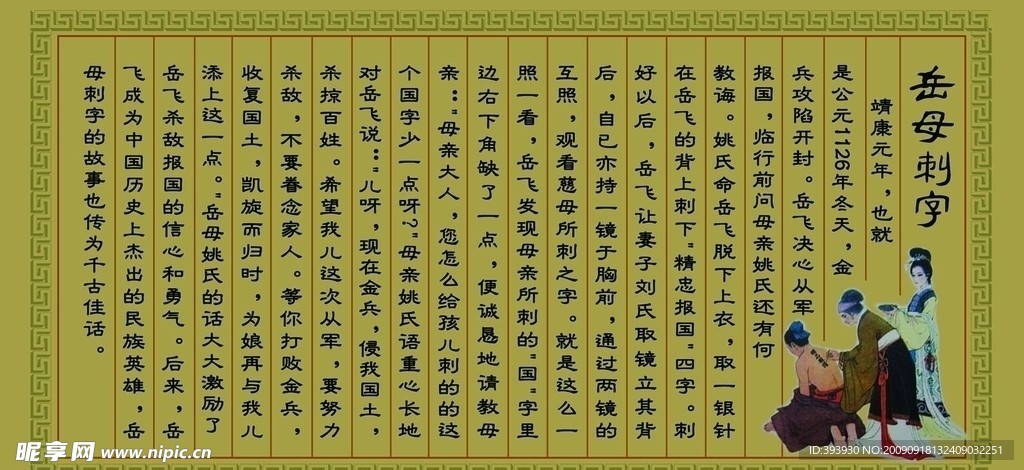 岳母刺字
靖康元年，也就
是公元1126年冬天，金
兵攻陷开封。岳飞决心从军
报国，临行前问母亲姚氏还有何
教诲。姚氏命岳飞脱下上衣，取一银针
在岳飞的背上刺下"精忠报国"四字。刺
好以后，岳飞让妻子刘氏取镜立其背
后，自己亦持一镜于胸前，通过两镜的
互照，观看慈母所刺之字。就是这么一
照一看，岳飞发现母亲所刺的"国"字里
边右下角缺了一点，便诚恳地请教母
亲："毋亲大人，您怎么给孩儿刺的的这
个国字少一点呀?"母亲姚氏语重心长地
对岳飞说："儿呀，现在金兵，侵我国土，
杀掠百姓。希望我儿这次从军，要努力
杀敌，不要眷念家人。等你打败金兵，
收复国土，凯旋而归时，为娘再与我儿
添上这一点。"岳母姚氏的话大大激励了
岳飞杀敌报国的信心和勇气。后来，岳
飞成为中国历史上杰出的民族英雄，岳
母刺字的故事也传为千古佳话。
昵享网 www.nipic.cn
ID:393930 NO:20090918132409032251